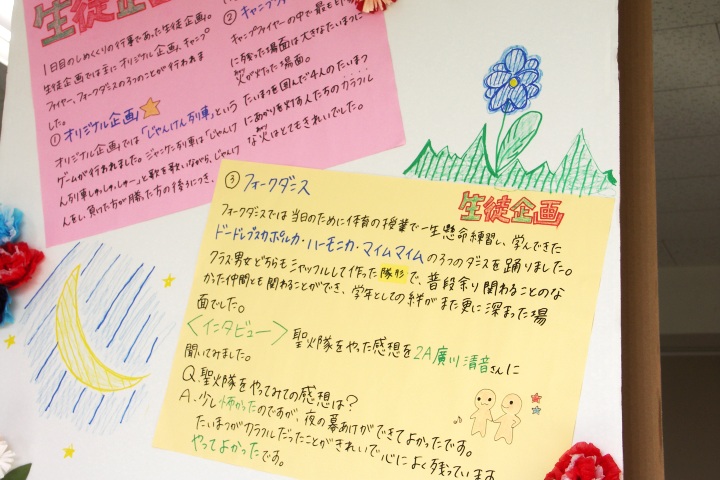 生徒企画
1日目のしめくくりの行事であった生徒企画。
生徒企画では主にオリジナル企画、キャンプ
ファイヤー、フォークダンスの3つのことが行われま
した。
① オリジナル企画
オリジナル企画では「じゃんけん列車」という
ゲームが行われました。ジャンケン列車は「じゃんけ
ん列車しゅしゅしゅー」と歌を歌いながら、じゃんけ
んをし、負けた方が勝った方の後ろにつき、
② キャンプファイ
キャンプファイヤーの中で最も
に残った場面は大きなたいまつに
火が灯った場面。
たいまつを囲んだ4人のたいまつ
にあかりを灯す人たちのカラフル
な火はとてもきれいでした。
③ フォークダンス
生徒企画
フォークダンスでは当日のために体育の授業で一生懸命練習し、学んできた
ドードレブスカポルカ・ハーモニカ・マイムマイムの3つのダンスを踊りました。
クラス男女どちらもシャッフルして作った隊形で、普段余り関わることのな
かった仲間とも関わることができ、学年としての絆がまた更に深まった場
面でした。
<インタビュー> 聖火隊をやった感想を2A廣川清音さんに
聞いてみました。
Q.聖火隊をやってみての感想は?
A.少し怖かったのですが、夜の幕あけができてよかったです。
たいまつがカラフルだったことがきれいで心によく残っています
やってよかったです。